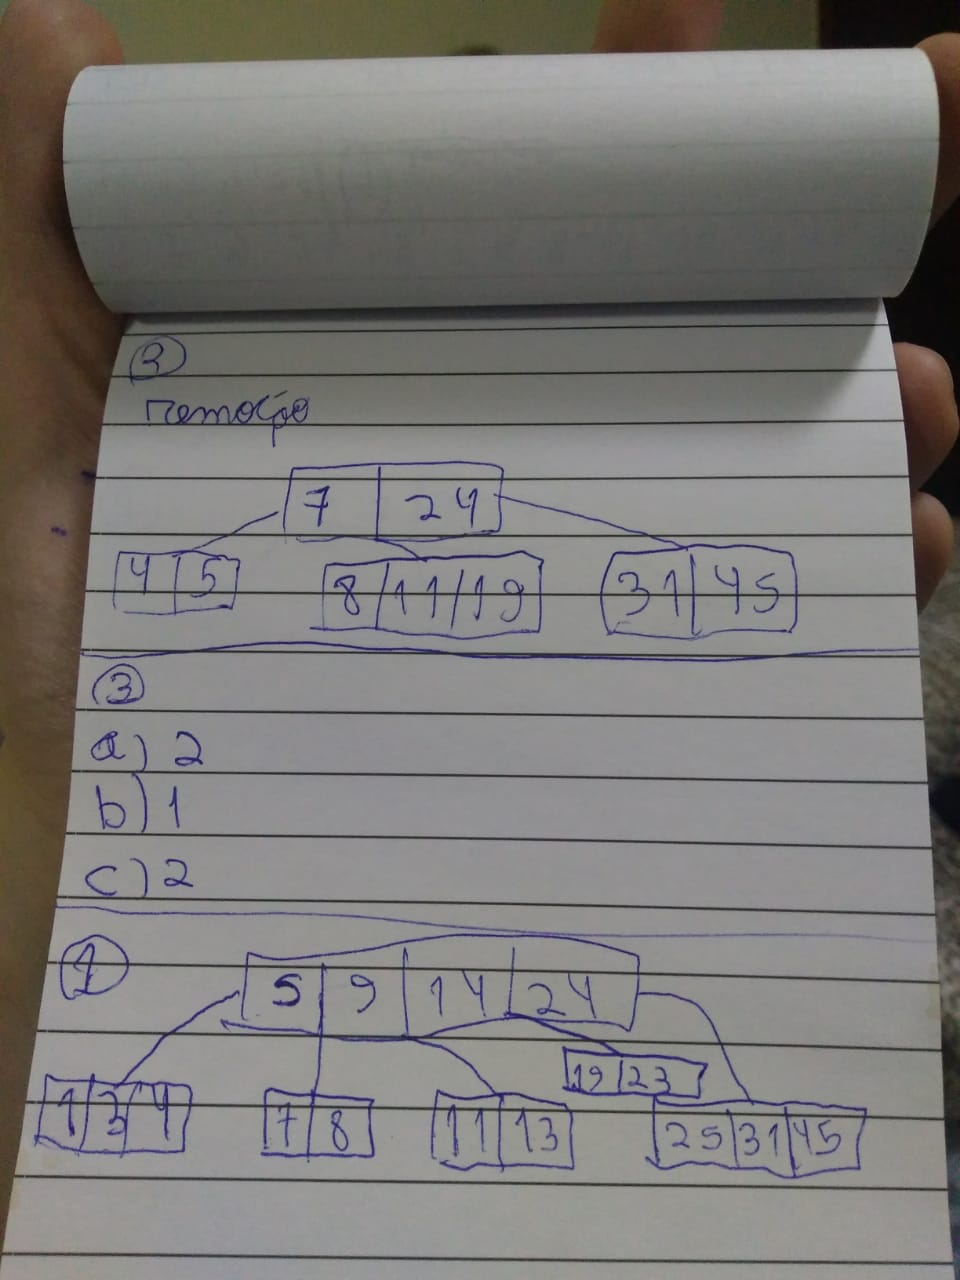 2
remoção
7 24
4 5 8 11 19 31 45
3
a) 2
b) 1
c) 2
1
5 9 14 24
19 23
1 3 4 7 8 11 13 25 31 45